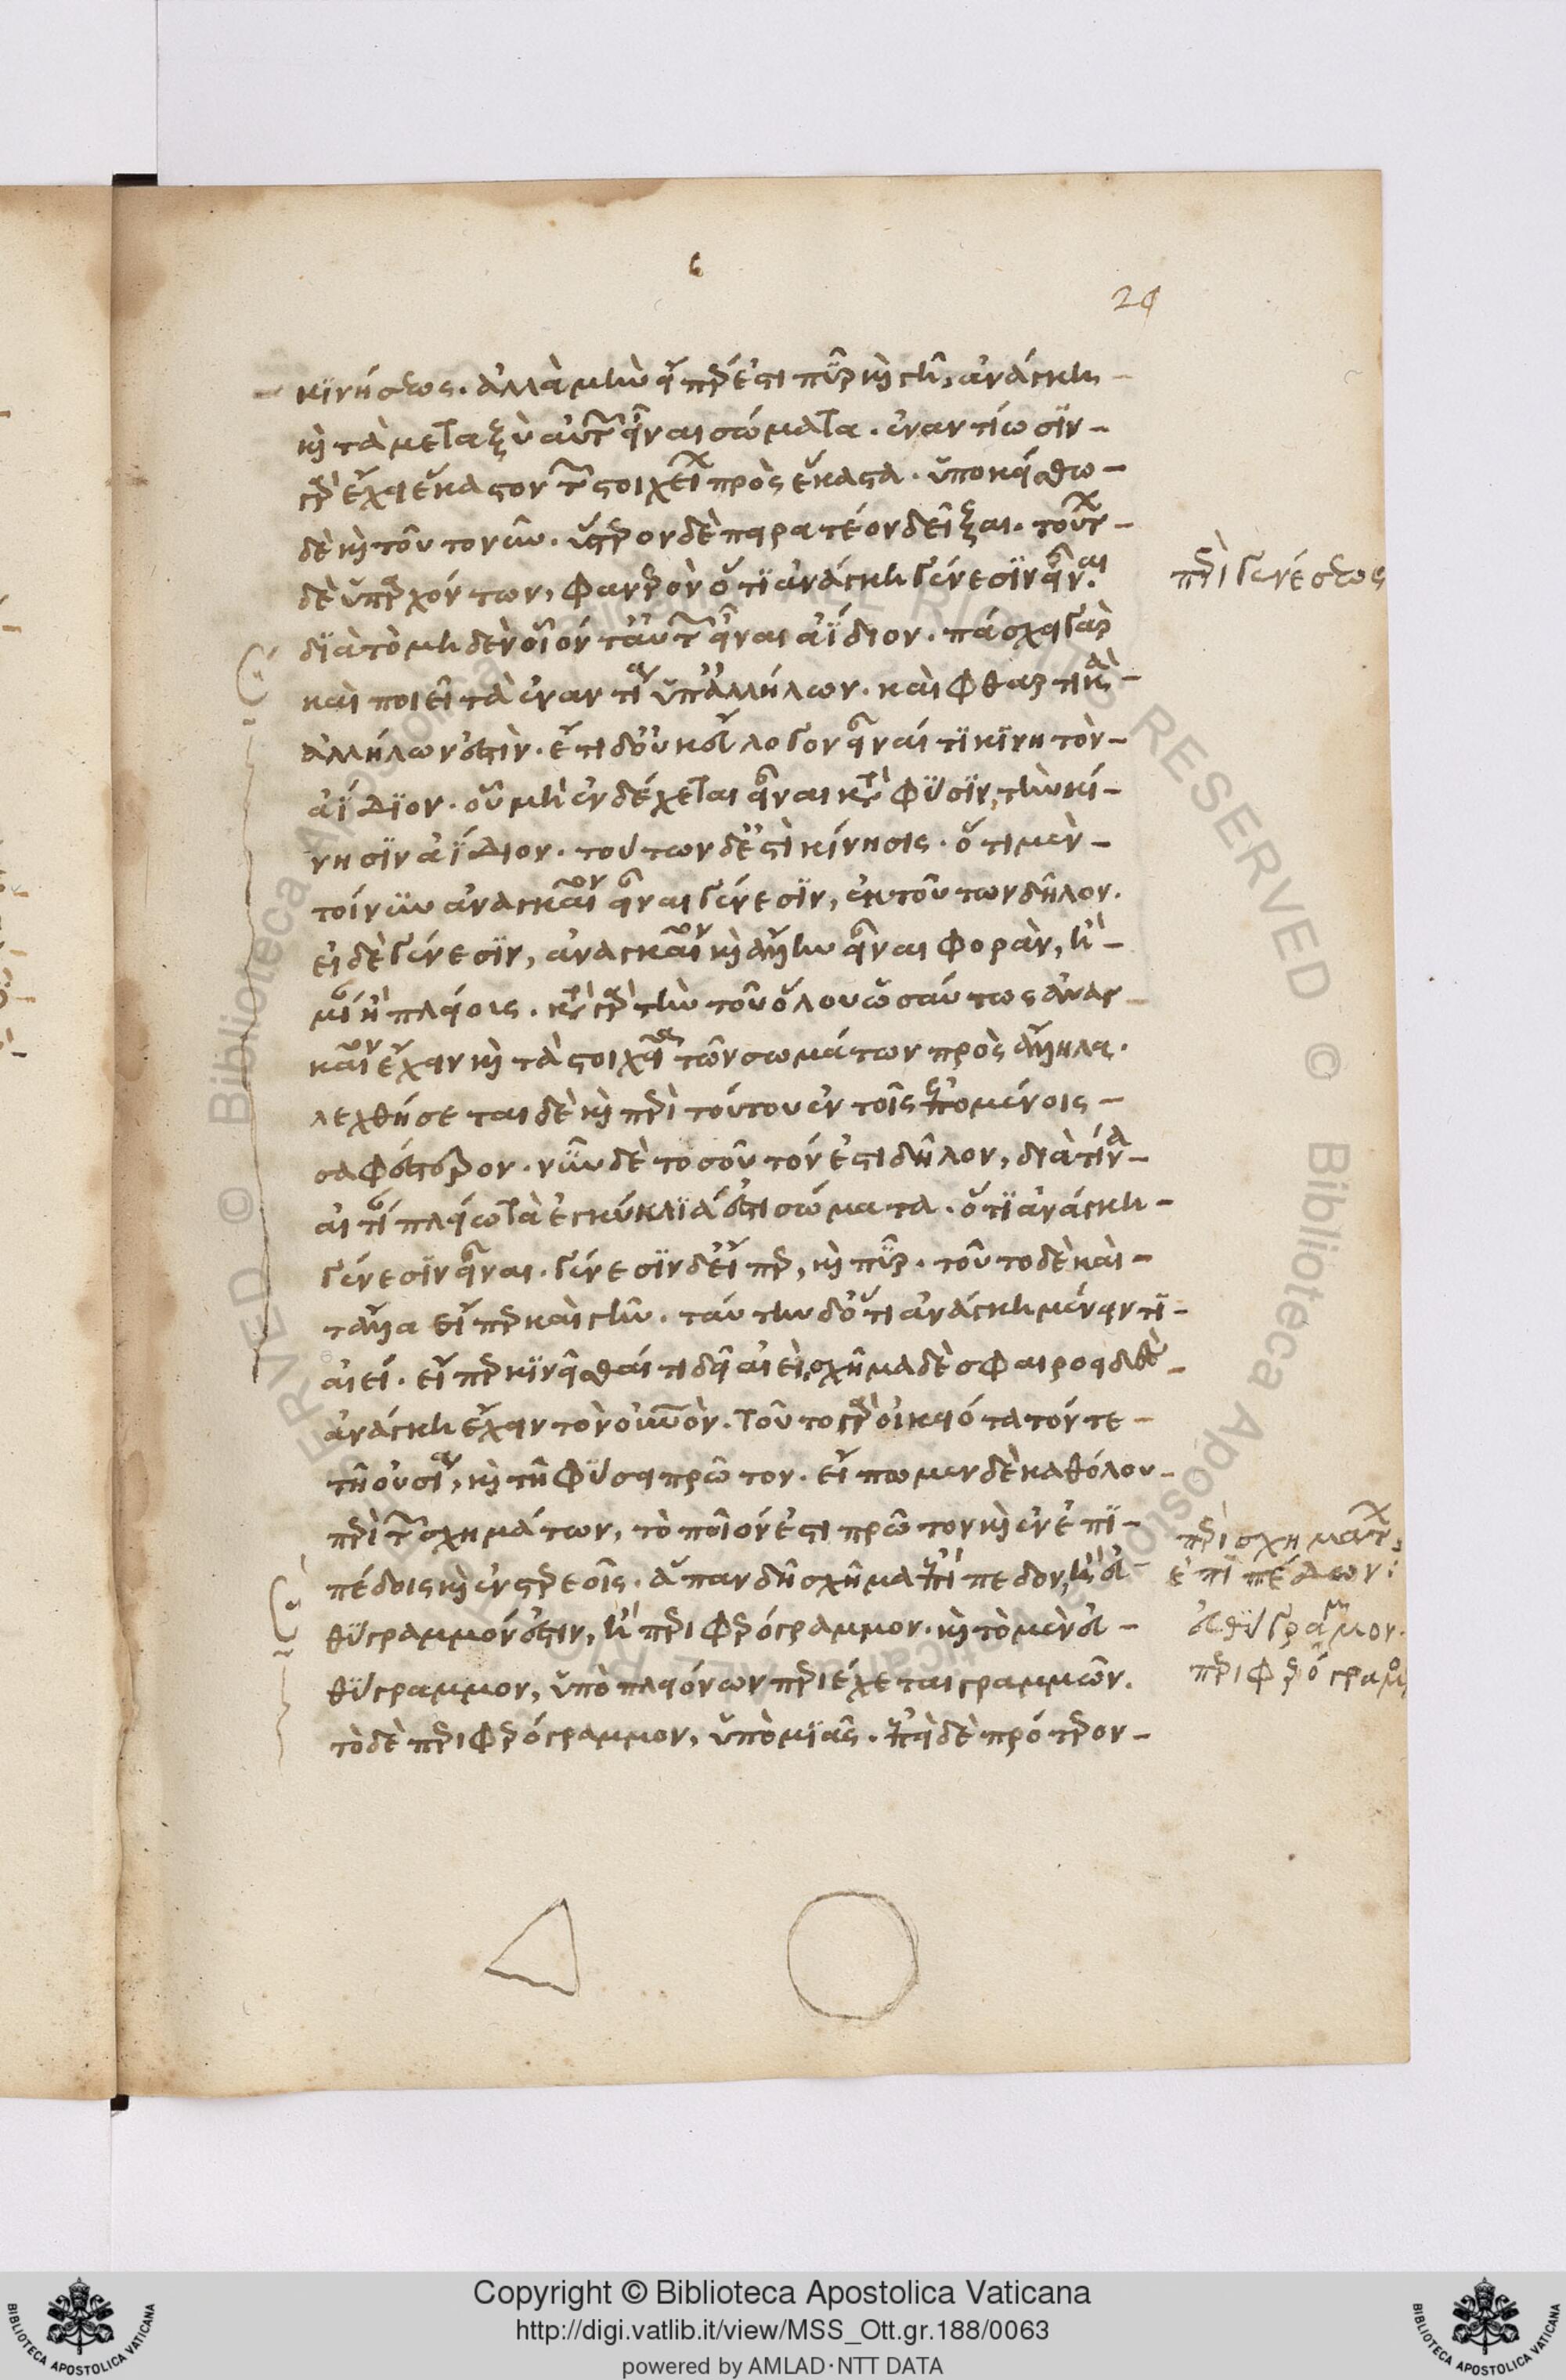 6
29
κϊνήσεως. ἀλλὰ μὴν εἴπερ ἐστι πῦρ καὶ γῆ, ἀνάγκη -
καὶ τὰ μεταξὺ αὐτῶν εἶναι σώματα. ἐναντίωσϊν -
γὰρ ἔχει ἕκαστον τῶν στοιχείων πρὸς ἕκαστα. ὑποκείσθω -
δὲ καὶ τοῦτον νῦν. ὕστερον δὲ πειρατέον δεῖξαι. τούτων -
δὲ ὑπαρχόντων, φανερὸν ὅτϊ ἀνάγκη γένεσϊν εἶναι.
δϊὰ τὸ μηδὲν οἷόν τ᾽αὐτῶν εἶναι ἀΐδιον. πάσχει γὰρ
καὶ ποιεῖ τὰ ἐναντία ὑπ᾽ἀλλήλων. καὶ φθαρτικὰ -
ἀλλήλων ἐστὶν. ἔτι δ᾽οὐκ εὔλογον εἶναί τϊ κϊνητὸν -
ἀΐδϊον. οὗ μὴ ἐνδέχεται εἶναι κατὰ φΰσϊν, τὴν κί -
νησϊν ἀΐδιον. τούτων δ᾽ἐστὶ κίνησις. ὅτι μὲν -
τοίνϋν ἀναγκαῖον εἶναι γένεσϊν, ἐκ τούτων δῆλον.
εἰ δὲ γένεσϊν, ἀναγκαῖον καὶ ἄλλην εἶναι φορὰν, ἢ -
μίαν ἢ πλείους. κατὰ γὰρ τὴν τοῦ ὅλου ὡσαύτως ἀναγ -
καῖον ἔχειν καὶ τὰ στοιχεῖα τῶν σωμάτων πρὸς ἄλληλα.
λεχθήσεται δὲ καὶ περὶ τούτου ἐν τοῖς ἑπομένοις -
σαφέστερον. νῦν δὲ τοσοῦτόν ἐστι δῆλον, διὰ τίνα -
αἰτίαν πλείω τὰ ἐγκύκλϊά ἐστι σώματα. ὅτϊ ἀνάγκη -
γένεσϊν εἶναι. γένεσϊν δ᾽εἴπερ, καὶ πῦρ. τοῦτο δὲ καὶ -
τἄλλα εἴπερ καὶ γῆν. ταύτην δ᾽ὅτι ἀνάγκη μένειν τϊ -
αἰεί. εἴπερ κϊνεῖσθαί τι δεῖ αἰεί. σχῆμα δὲ σφαιροειδὲς -
ἀνάγκη ἔχειν τὸν οὐρανὸν. τοῦτο γὰρ οἰκειότατόν τε -
τῇ οὐσίᾳ, καὶ τῇ φΰσει πρῶτον. εἴπωμεν δὲ καθόλου -
περὶ τῶν σχημάτων, τὸ ποῖόν ἐστι πρῶτον καὶ ἐν ἐπϊ -
πέδοις καὶ ἐν στερεοῖς. ἅπαν δὴ σχῆμα ἐπίπεδον, ἢ εὐ -
θΰγραμμόν ἐστιν, ἢ περιφερόγραμμον. καὶ τὸ μὲν εὐ -
θΰγραμμον, ὑπὸ πλειόνων περιέχεται γραμμῶν.
τὸ δὲ περιφερόγραμμον, ὑπὸ μϊᾶς. ἐπεὶ δὲ πρότερον -
περὶ γενέσεως
περὶ σχημάτων
ἐπϊπέδων:
εὐθΰγραμμον.
περιφερόγραμμ
Copyright © Biblioteca Apostolica Vaticana
http://digi.vatlib.it/view/MSS_Ott.gr.188/0063
powered by AMLAD·NTT DATA